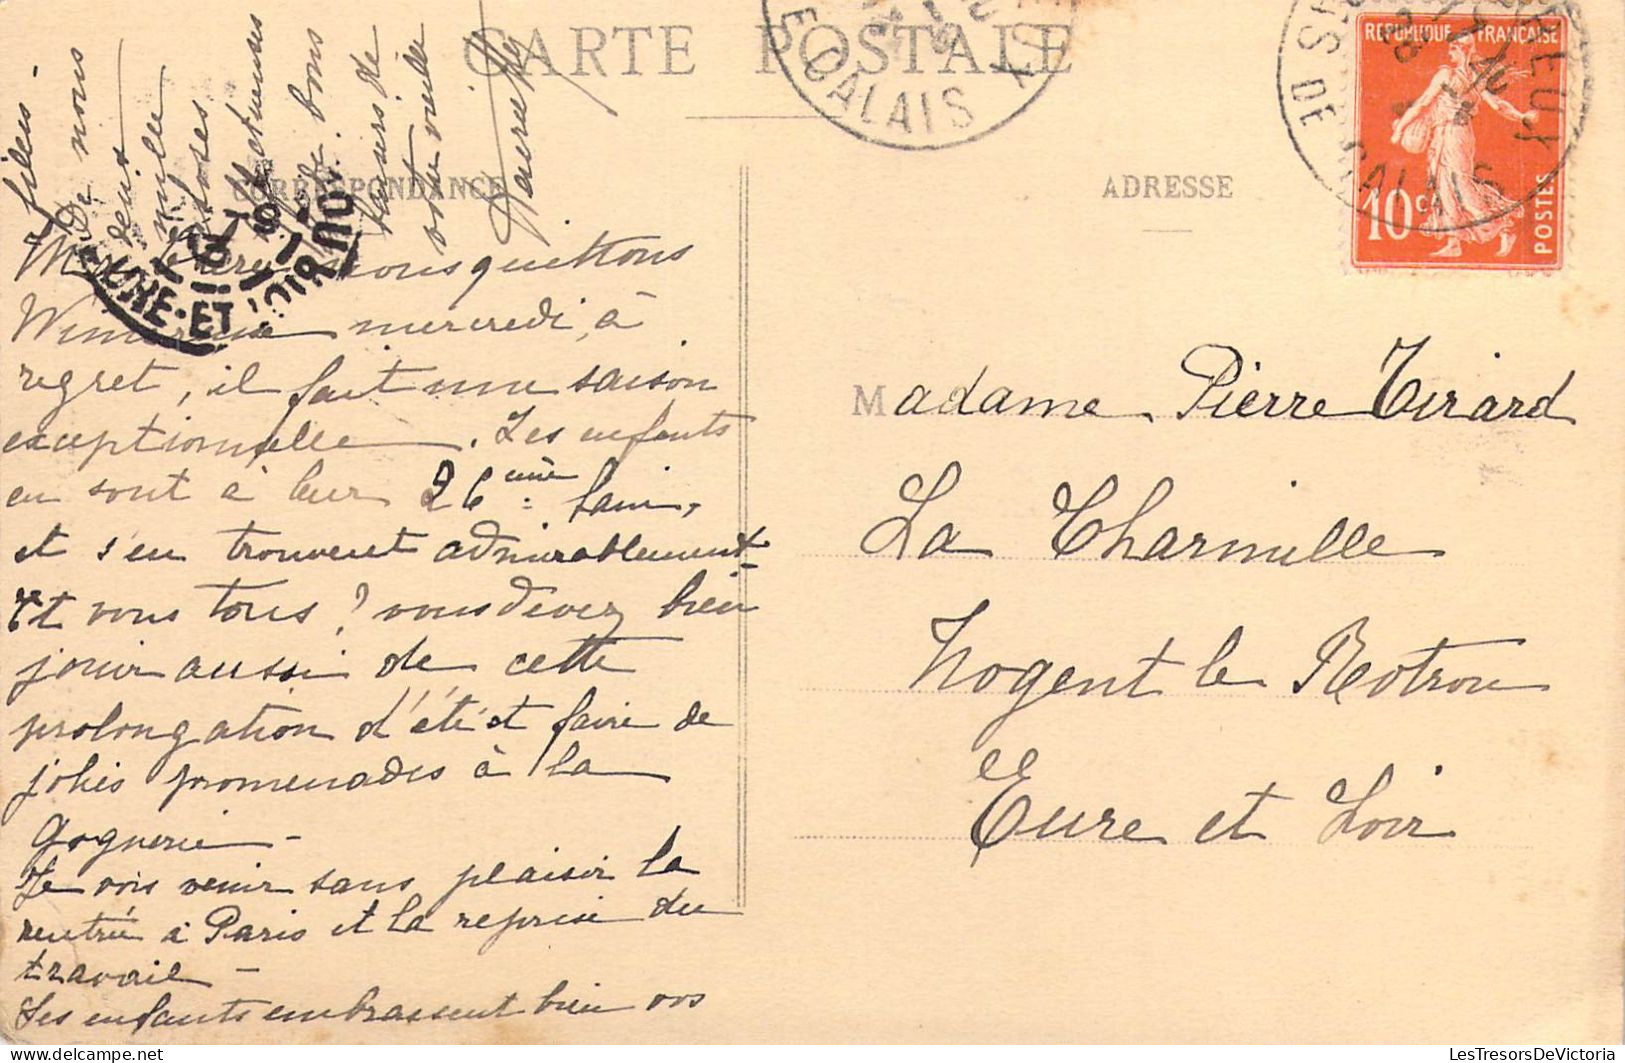 CARTE POSTALE
CORRESPONDANCE
ADRESSE
REPUBLIQUE FRANÇAISE
10c
POSTES
DE CALAIS
DE CALAIS
EURE-ET-LOIR
nous quittons
Wimereux mercredi, à
regret, il fait une saison
exceptionnelle. Les enfants
en sont à leur 26ème bain,
et s'en trouvent admirablement
Et vous tous? vous devez bien
jouir aussi de cette
prolongation d'été et faire de
jolies promenades à la
Je vois venir sans plaisir la
rentrée à Paris et la reprise du
travail -
Les enfants embrassent bien vos
filles
De nous
deux
mille
choses
affectueuses
bons
baisers de
votre vieille
Madame Pierre Tirard
La Charmille
Nogent le Rotrou
Eure et Loir
LesTresorsDeVictoria